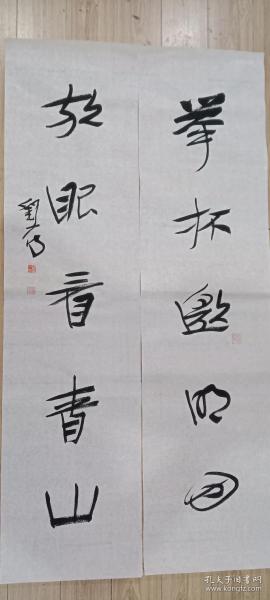 举杯邀明月
放眼看青山
孔夫子旧书网